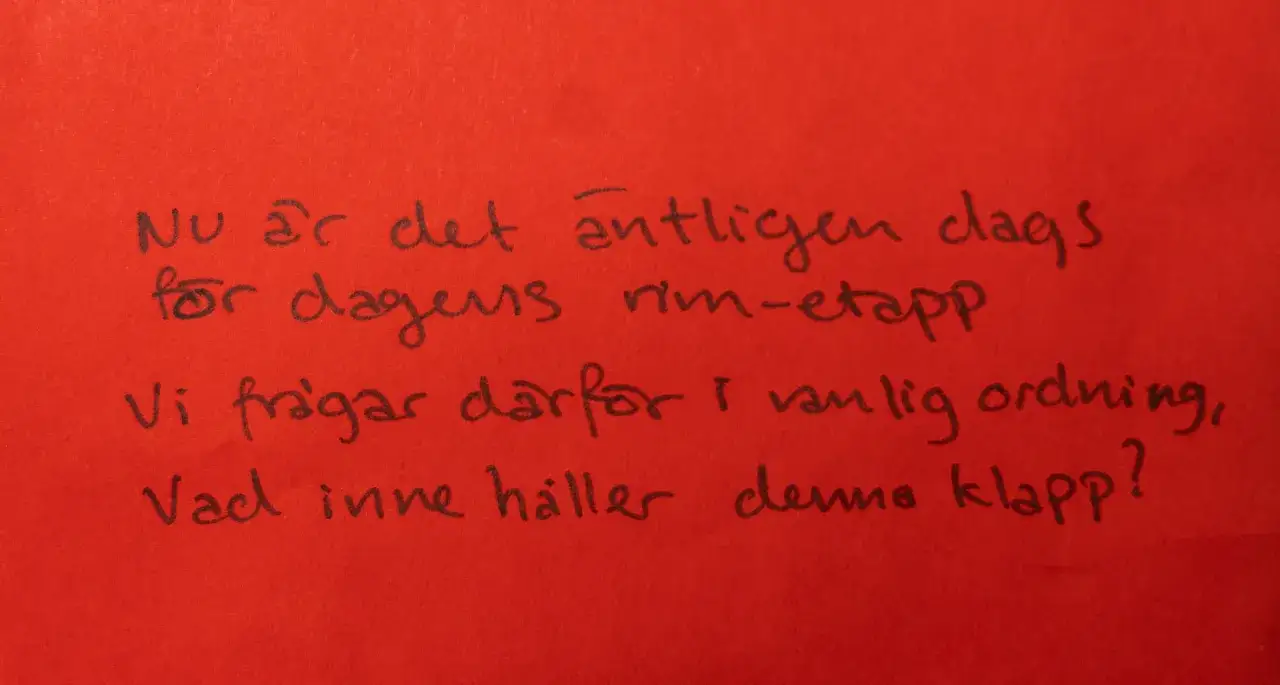 Nu är det äntligen dags
för dagens rim-etapp
Vi frågar därför i vanlig ordning,
Vad inne håller denna klapp?